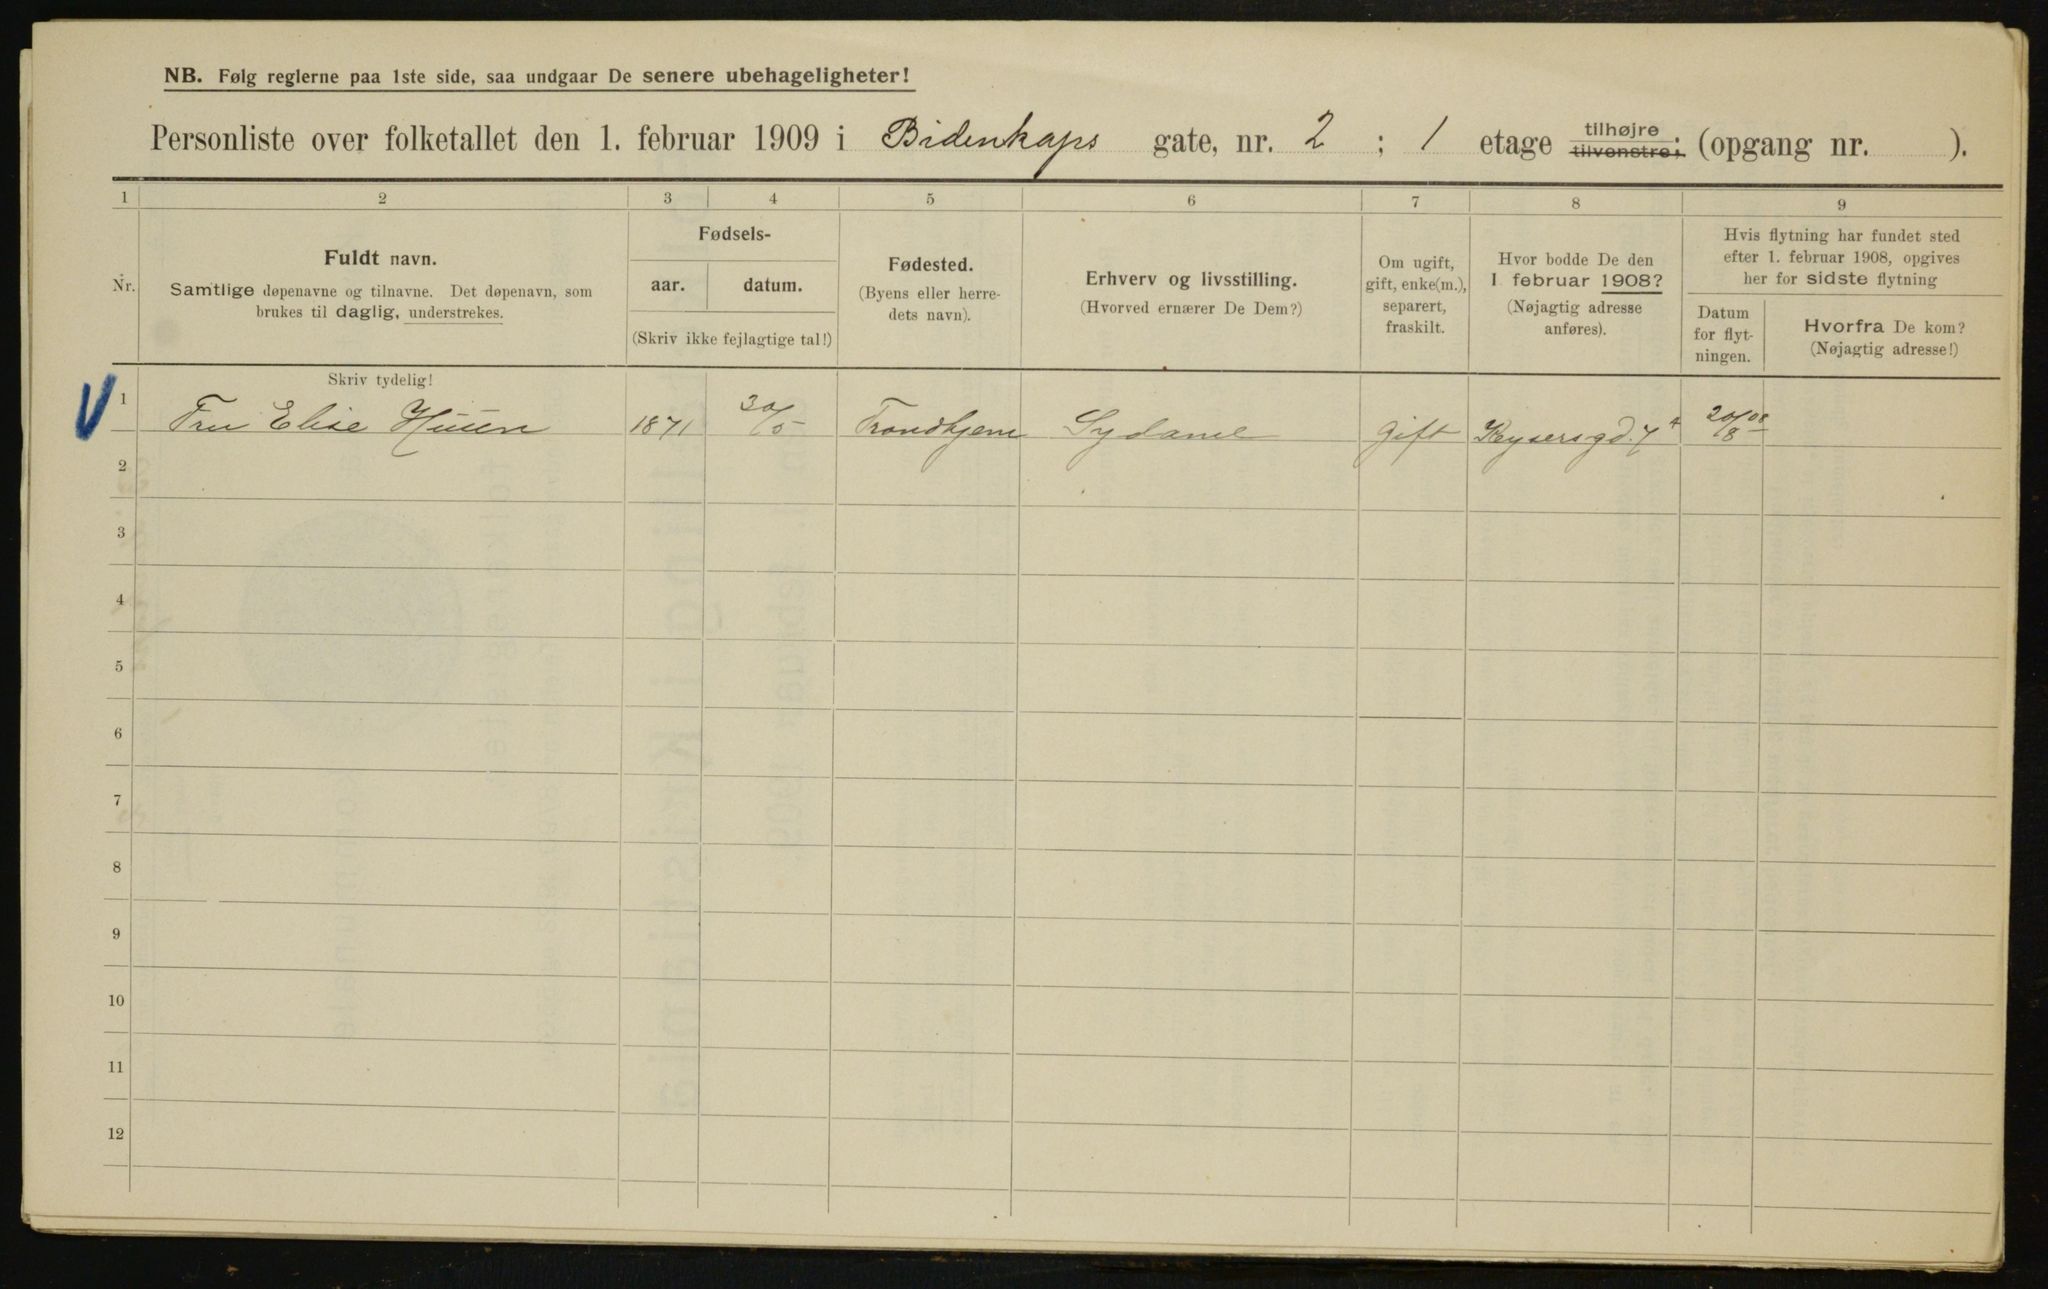 NB. Følg reglerne paa 1ste side, saa undgaar De senere ubehageligheter!
Personliste over folketallet den 1. februar 1909 i Bidenkaps gate, nr. 2 ; 1 etage tilhøjre tilvenstre; (opgang nr. ).
1 2 3 4 5 6 7 8 9
Nr.
Fuldt navn.
Samtlige døpenavne og tilnavne. Det døpenavn, som
brukes til daglig, understrekes.
Fødsels-
aar. datum.
(Skriv ikke fejlagtige tal!)
Fødested.
(Byens eller herre-
dets navn).
Erhverv og livsstilling.
(Hvorved ernærer De Dem?)
Om ugift,
gift, enke(m.),
separert,
fraskilt.
Hvor bodde De den
1 februar 1908?
(Nøjagtig adresse
anføres).
Hvis flytning har fundet sted
efter 1. februar 1908, opgives
her for sidste flytning
Datum
for flyt-
ningen.
Hvorfra De kom?
(Nøjagtig adresse!)
Skriv tydelig!
1 Fru Elise 1871 30/5 Trondhjem Sydame gift Keysersgd. 7 20/8 08
2
3
4
5
6
7
8
9
10
11
12